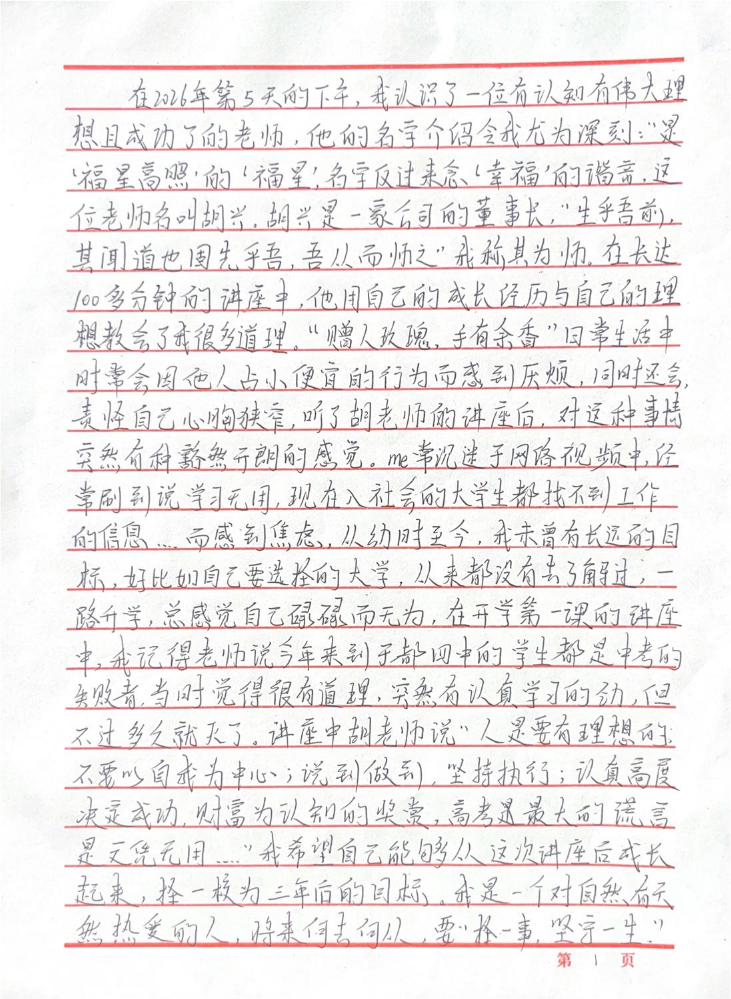 在2026年第5天的下午，我认识了一位有认知有伟大理
想且成功了的老师，他的名字介绍令我尤为深刻："是
'福星高照'的'福星'，名字反过来念'幸福'的谐音，这
位老师名叫胡兴。胡兴是一家公司的董事长，"生乎吾前，
其闻道也固先乎吾，吾从而师之"我称其为师。在长达
100多分钟的讲座中，他用自己的成长经历与自己的理
想教会了我很多道理。"赠人玫瑰，手有余香"日常生活中
时常会因他人占小便宜的行为而感到厌烦，同时还会
责怪自己心胸狭窄，听了胡老师的讲座后，对这种事情
突然有种豁然开朗的感觉。me常沉迷于网络视频中，经
常刷到说学习无用，现在入社会的大学生都找不到工作
的信息……而感到焦虑，从幼时至今，我未曾有长远的目
标，好比如自己要选择的大学，从来都没有去了解过，一
路升学，总感觉自己碌碌而无为，在开学第一课的讲座
中，我记得老师说今年来到于都四中的学生都是中考的
失败者，当时觉得很有道理，突然有认真学习的劲，但
不过多久就灭了。讲座中胡老师说"人是要有理想的；
不要以自我为中心；说到做到，坚持执行；认真高度
决定成功，财富为认知的奖赏，高考是最大的谎言
是文凭无用……"我希望自己能够从这次讲座后成长
起来，择一校为三年后的目标。我是一个对自然有天
然热爱的人，将来何去何从，要"择一事，坚守一生"。
第 1 页